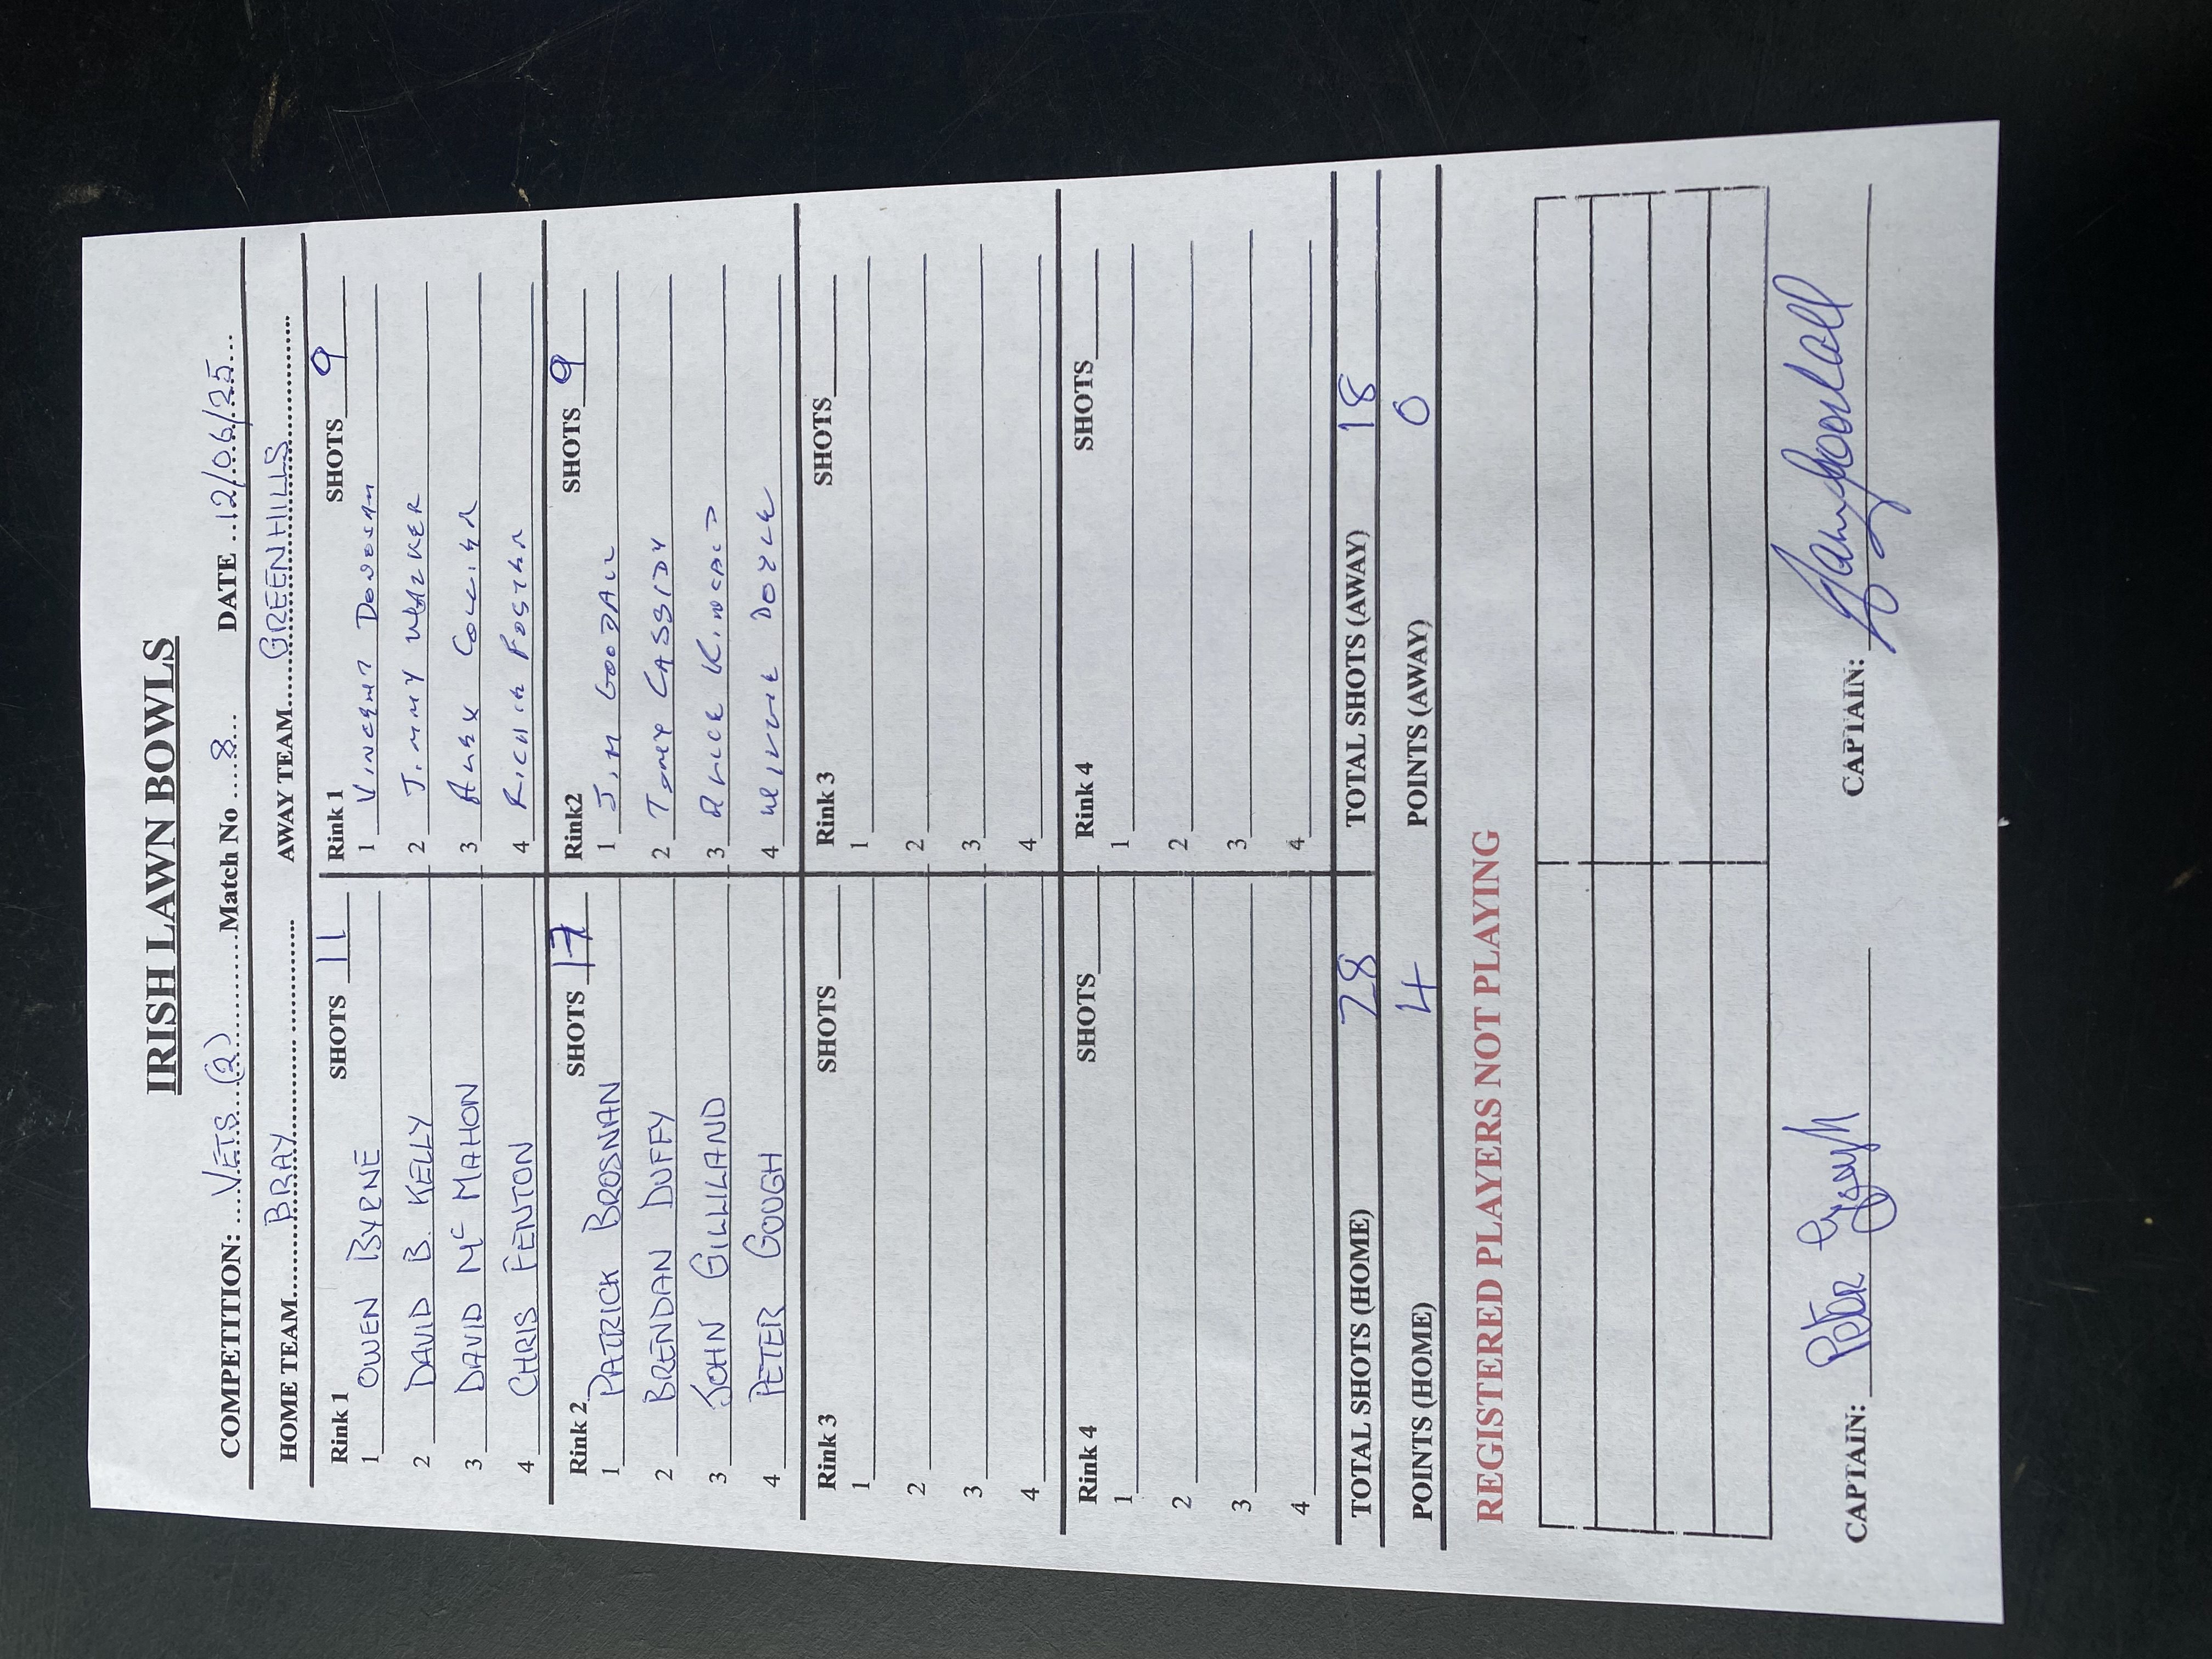 IRISH LAWN BOWLS
COMPETITION: ....VETS (2)............Match No ....8.... DATE ..12/06/25...
HOME TEAM........BRAY........................ AWAY TEAM....GREENHILLS................
Rink 1 SHOTS 11 Rink 1 SHOTS 9
1 OWEN BYRNE 1 VINCENT
2 DAVID B. KELLY 2 JIMMY WALKER
3 DAVID Mc MAHON 3 ALEX COLLIER
4 CHRIS FENTON 4 RICHIE FOSTER
Rink 2 SHOTS 17 Rink2 SHOTS 9
1 PATRICK BROSNAN 1 JIM GOODALL
2 BRENDAN DUFFY 2 TONY CASSIDY
3 JOHN GILLILAND 3
4 PETER GOUGH 4 DOYLE
Rink 3 SHOTS Rink 3 SHOTS
1 1
2 2
3 3
4 4
Rink 4 SHOTS Rink 4 SHOTS
1 1
2 2
3 3
4 4
TOTAL SHOTS (HOME) 28 TOTAL SHOTS (AWAY) 18
POINTS (HOME) 4 POINTS (AWAY) 0
REGISTERED PLAYERS NOT PLAYING
CAPTAIN: Peter Gough CAPTAIN: